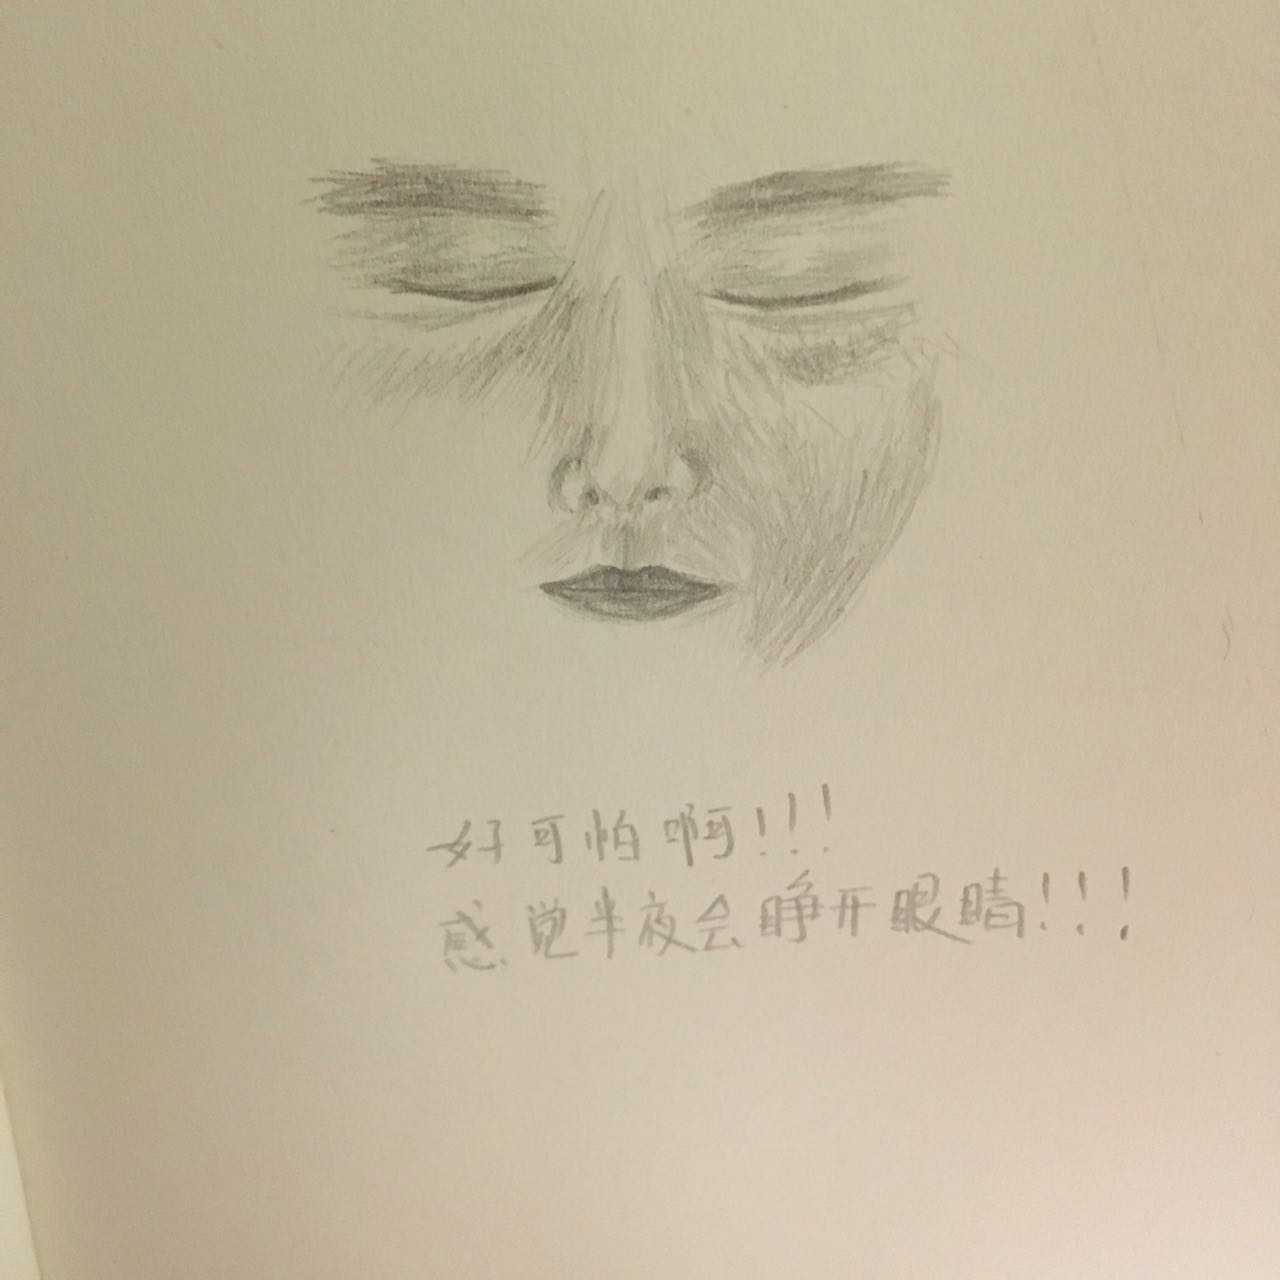 好可怕啊!!!
感觉半夜会睁开眼睛!!!